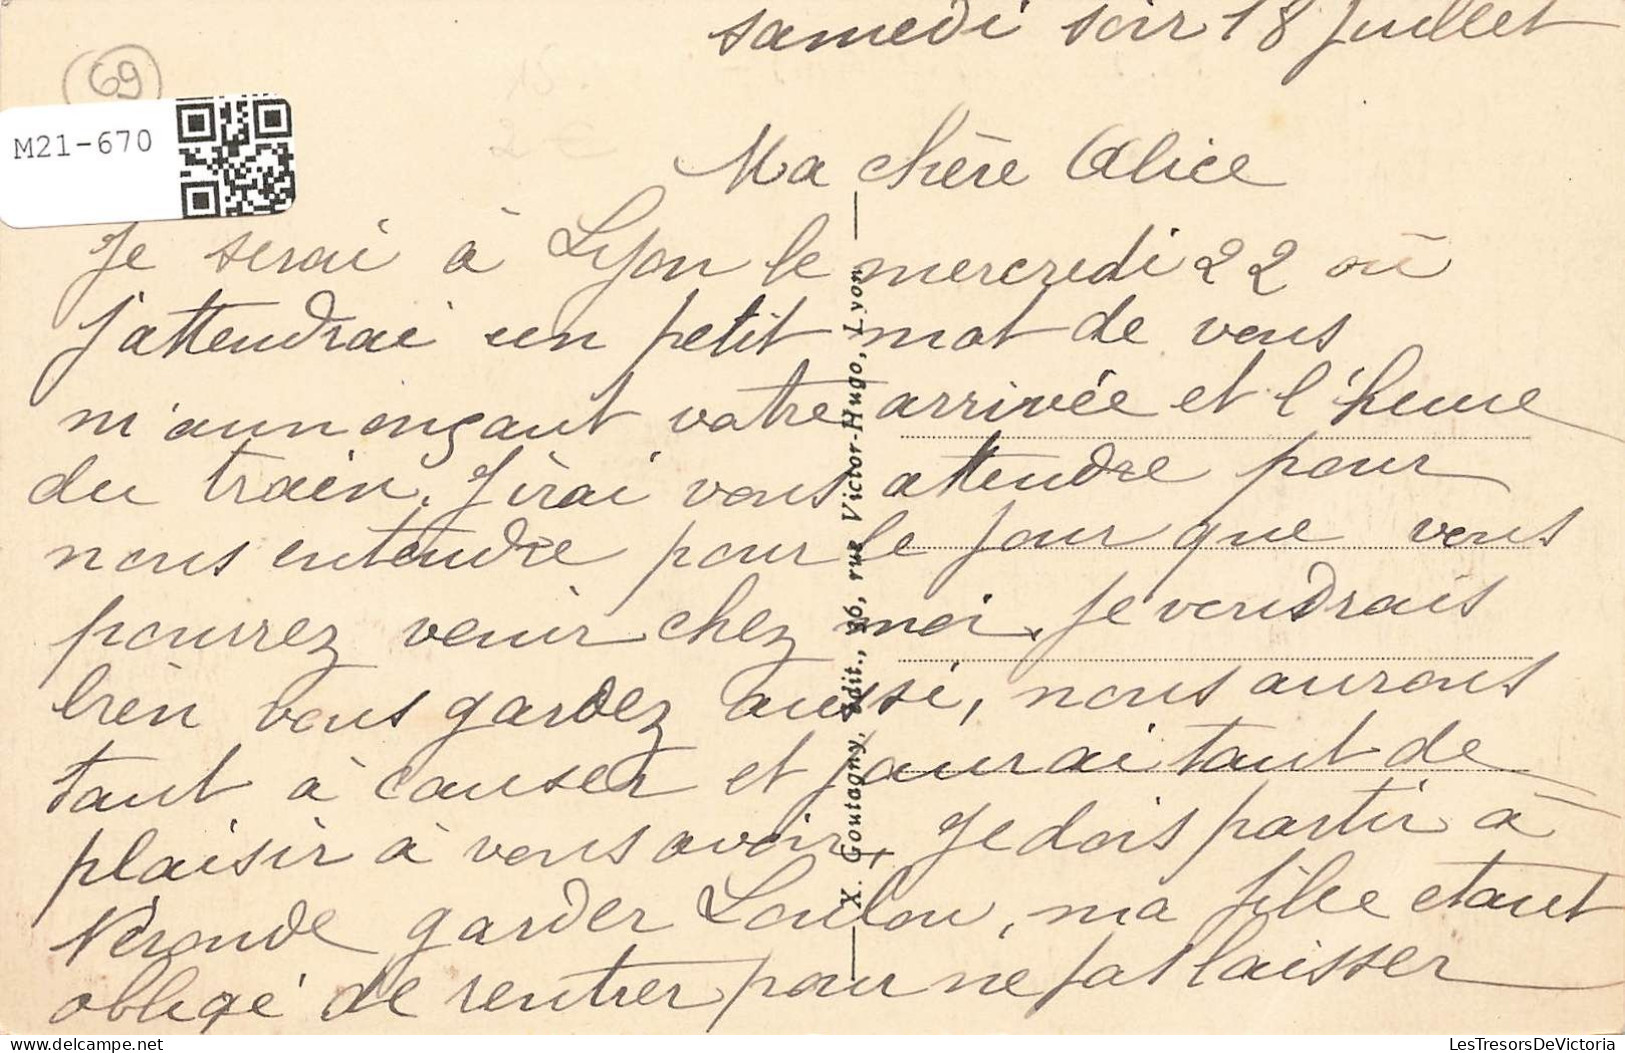 samedi soir 18 Juillet
69
M21-670
2 €
Ma chère Alice
Je serai à Lyon le mercredi 22 où
j'attendrai un petit mot de vous
m'annonçant votre arrivée et l'heure
du train. J'irai vous attendre pour
nous entendre pour le jour que vous
pourrez venir chez moi. Je voudrais
bien vous gardez aussi, nous aurons
tant à causer et j'aurai tant de
plaisir à vous avoir. Je dois partir à
Néronde garder Loulou, ma fille etant
obligé de rentrer pour ne pas laisser
X. Goutagny, Édit., 36, rue Victor-Hugo, Lyon
delcampe.net
LesTresorsDeVictoria